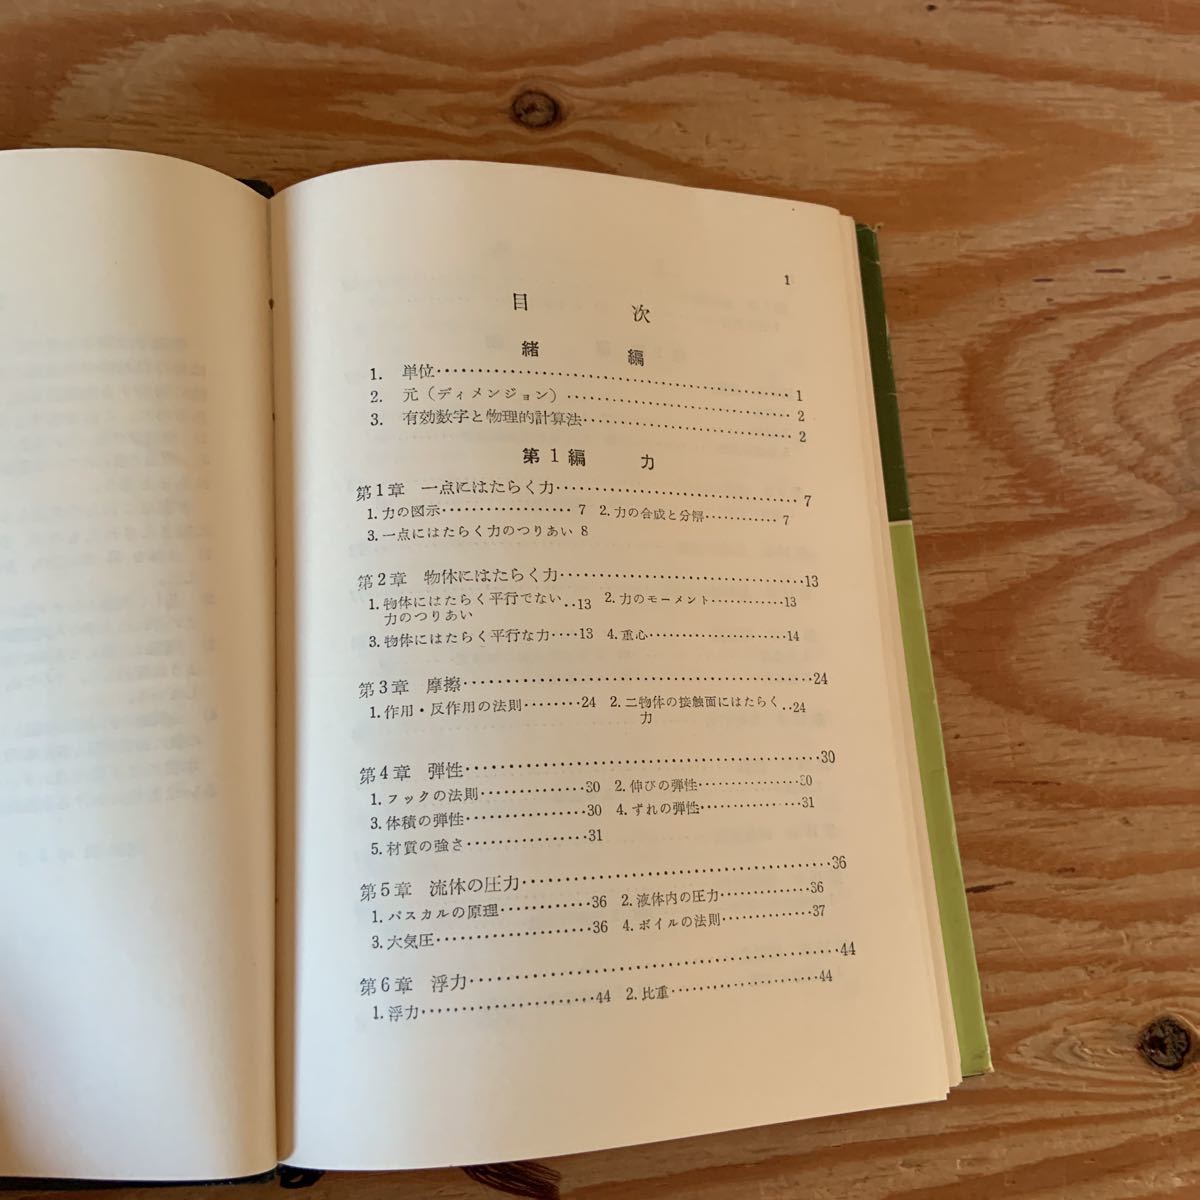 1
目次
緒編
1. 単位……………………………………1
2. 元（ディメンジョン）……………………2
3. 有効数字と物理的計算法…………………2
第1編 力
第1章 一点にはたらく力……………………7
1. 力の図示………………7 2. 力の合成と分解…………7
3. 一点にはたらく力のつりあい 8
第2章 物体にはたらく力……………………13
1. 物体にはたらく平行でない力のつりあい‥13 2. 力のモーメント…………13
3. 物体にはたらく平行な力‥‥13 4. 重心……………………14
第3章 摩擦……………………………………24
1. 作用・反作用の法則………24 2. 二物体の接触面にはたらく力‥24
第4章 弾性……………………………………30
1. フックの法則……………30 2. 伸びの弾性……………30
3. 体積の弾性………………30 4. ずれの弾性……………31
5. 材質の強さ………………31
第5章 流体の圧力……………………………36
1. パスカルの原理…………36 2. 液体内の圧力…………36
3. 大気圧……………………36 4. ボイルの法則…………37
第6章 浮力……………………………………44
1. 浮力………………………44 2. 比重……………………44